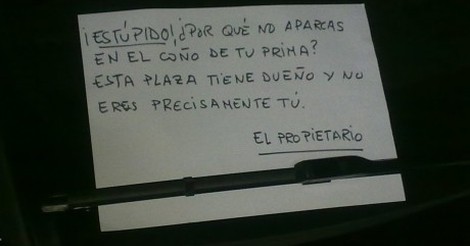 ¡ESTÚPIDO!¿POR QUÉ NO APARCAS
EN EL COÑO DE TU PRIMA?
ESTA PLAZA TIENE DUEÑO Y NO
ERES PRECISAMENTE TÚ.
EL PROPIETARIO